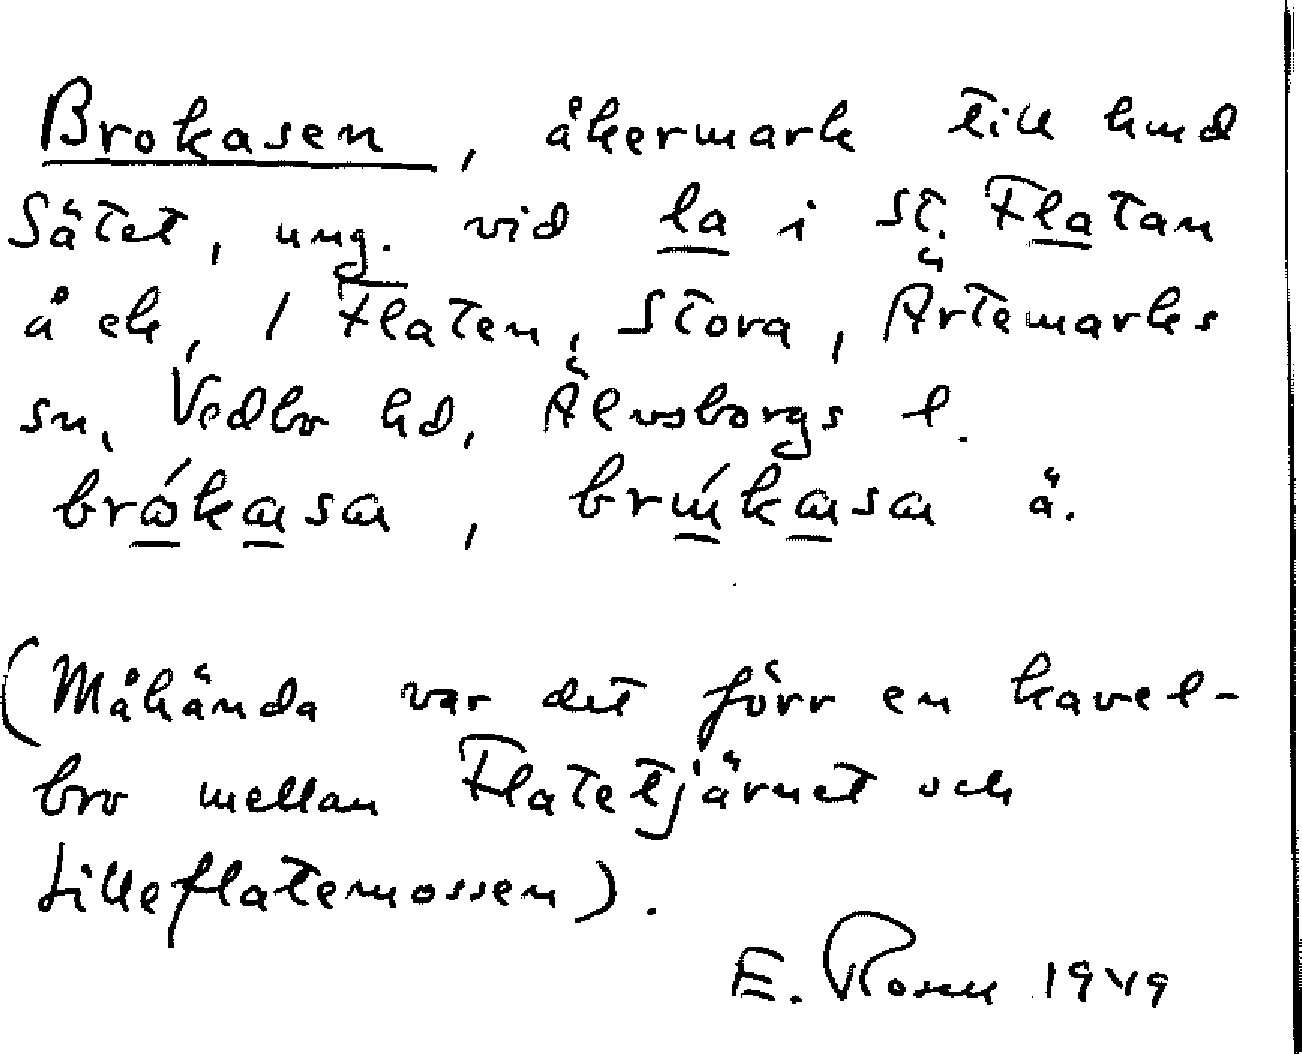 Brokasen, åkermark till hmd
Sätet, ung. vid la i St. Flatan
å ek, / Flaten, Stora, Ärtemarks
sn, Vedbo hd, Älvsborgs l.
bråkasa, brukasa ä.
(Måhända var det förr en kavel-
bro mellan Flatetjärnet och
Lilleflatemossen).
E. Rosen 1949